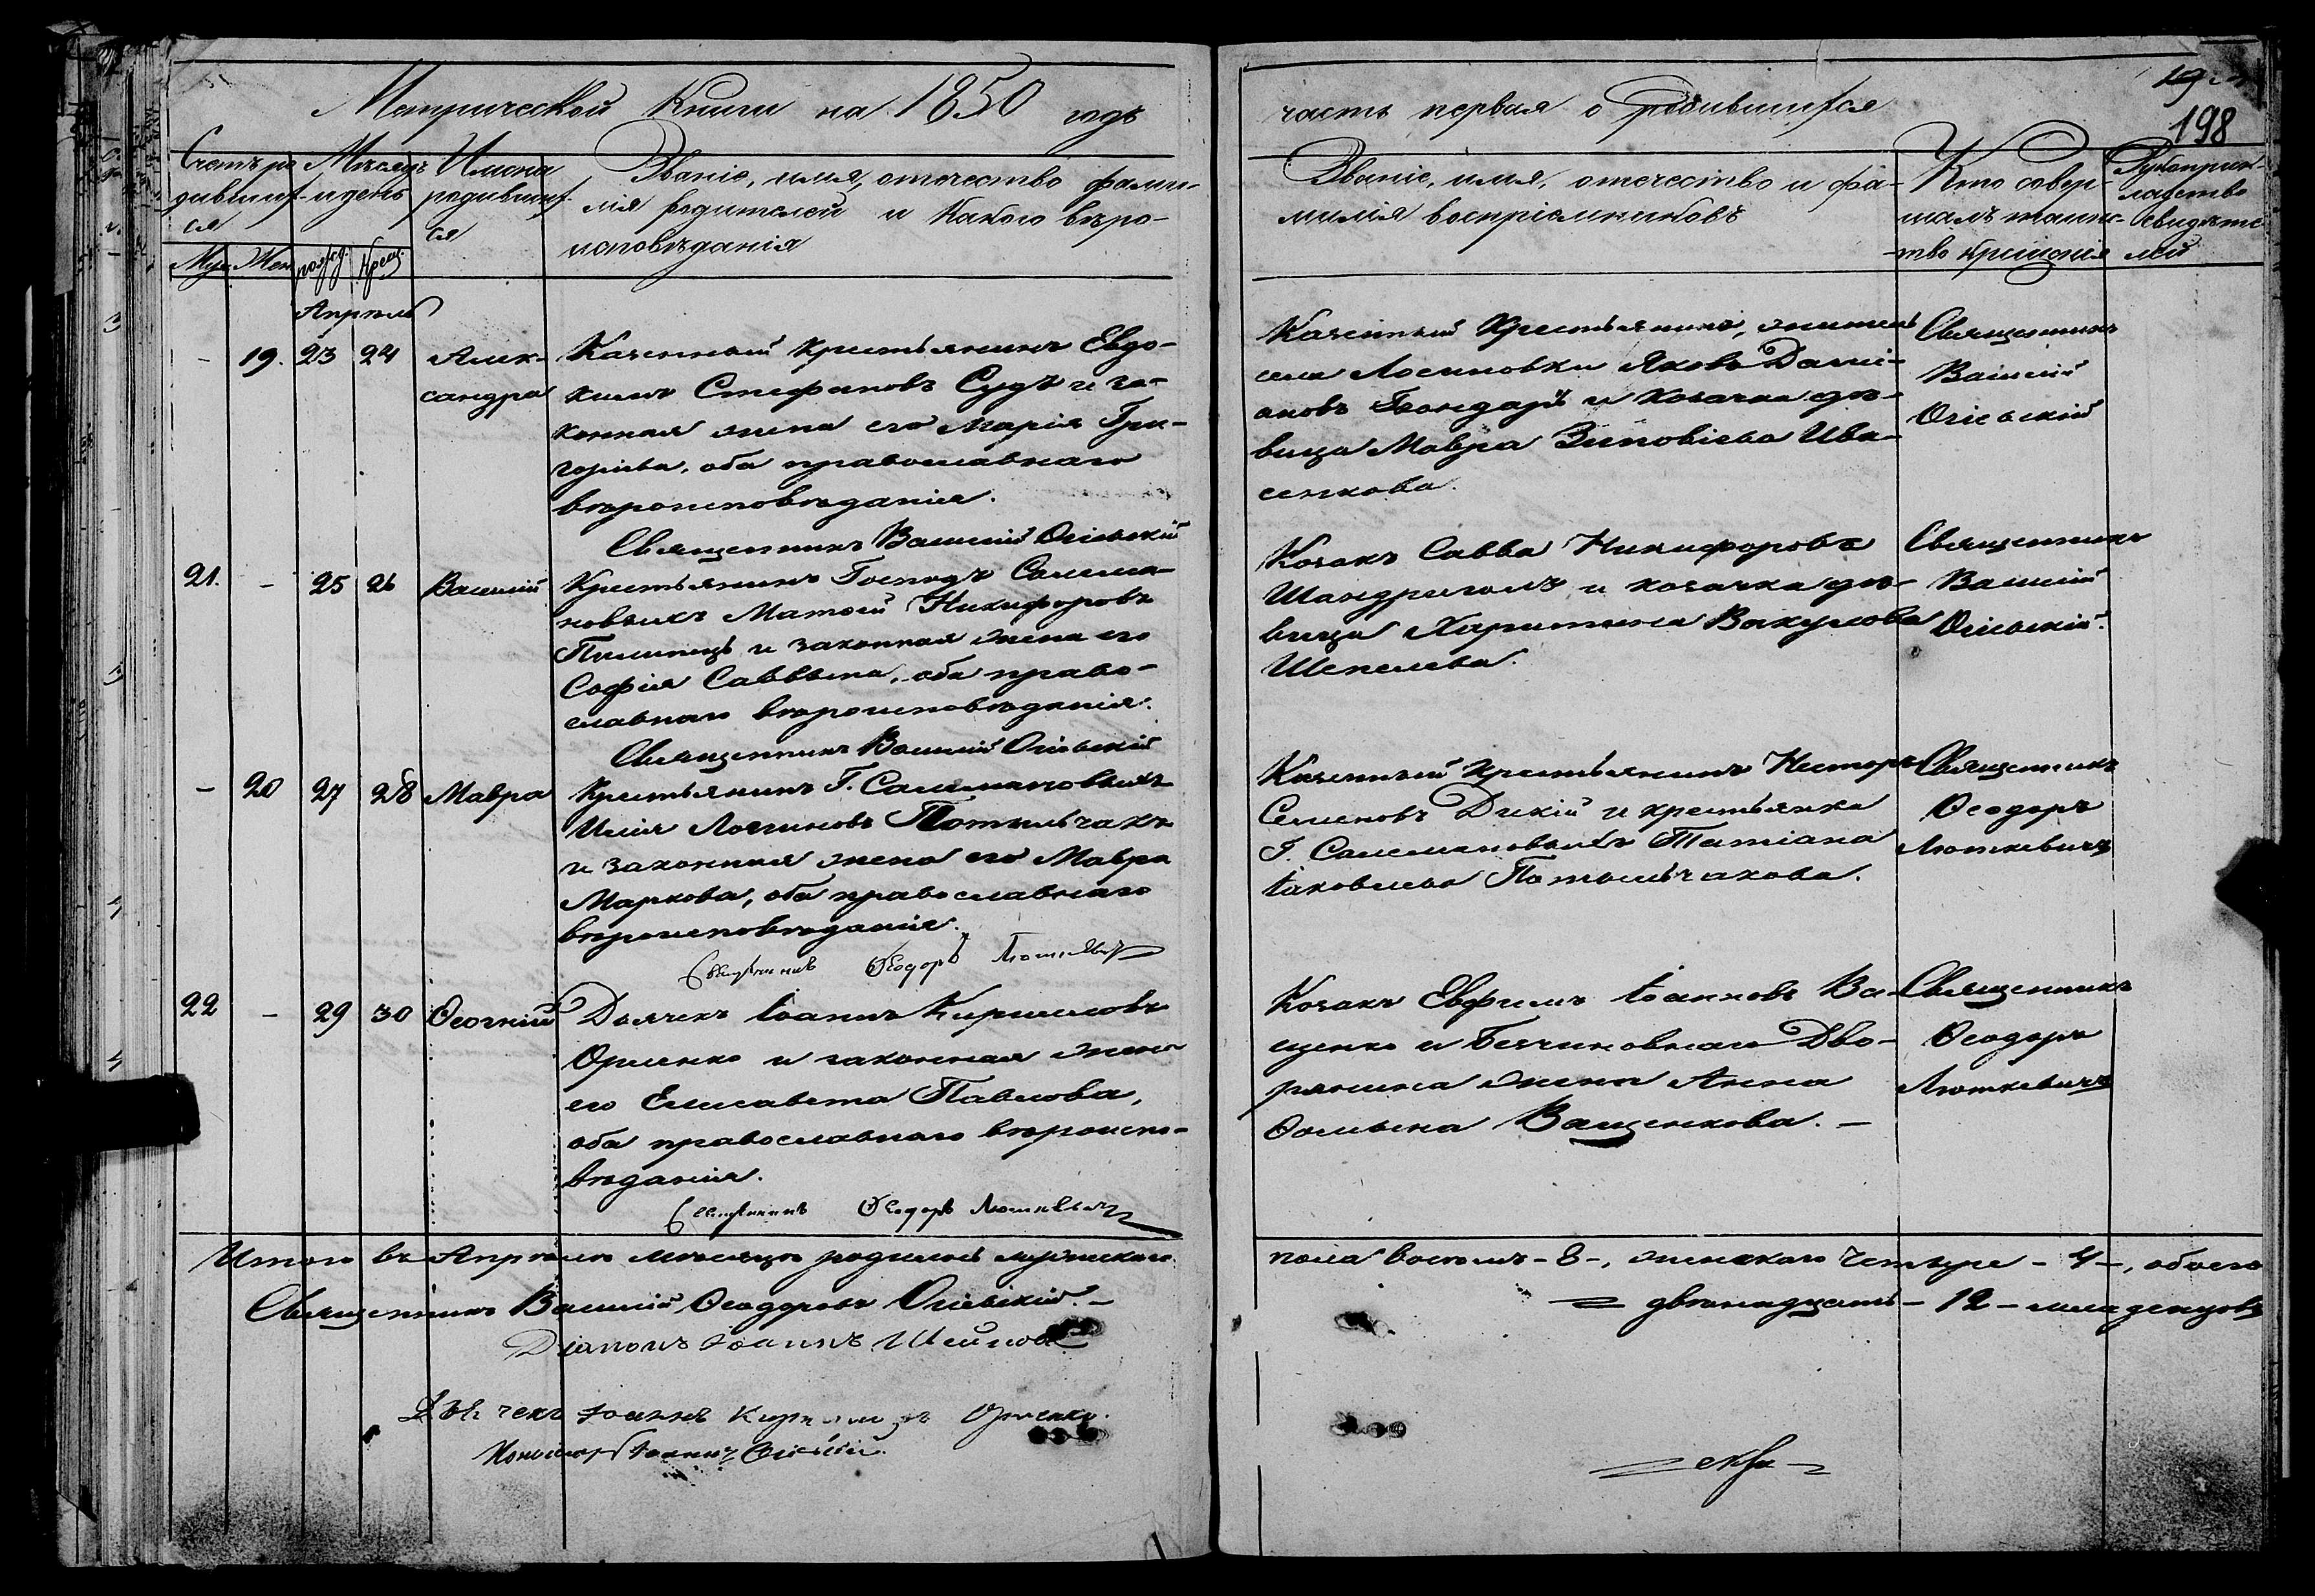 Метрической Книги на 1850 годъ
часть первая о родившихся
198
Счетъ ро-
дившихъ-
ся
Муж. Жен.
Мѣсяцъ
и день
рожд. Крещ.
Имена
родивших-
ся
Званіе, имя, отечество фами-
лія родителей и какого вѣро-
исповѣданія
Званіе, имя, отечество и фа-
милія воспріемниковъ
Кто совер-
шалъ таинс-
тво крещенія
Рукоприк-
ладство
свидѣте
лей
Апрѣль
- 19. 23 24 Алек-
сандра
Казенный крестьянинъ Евдо-
кимъ Стефановъ Судъ и за-
конная жена его Марія Гри-
горьева, оба православнаго
вѣроисповѣданія.
Священникъ Василій Огіевскій
Казенный крестьянинъ, житель
села Лосиновки Яковъ Даміа-
новъ Бондарь и козачка дѣ-
вица Мавра Зиновіева Ива-
сенкова.
Священникъ
Василій
Огіевскій
21. - 25 26 Василій
Крестьянинъ Господъ Селема-
новыхъ Матѳей Никифоровъ
Пилипецъ и законная жена его
Софія Саввина, оба право-
славнаго вѣроисповѣданія.
Священникъ Василій Огіевскій
Козакъ Савва Никифоровъ
Шандриголъ и козачка дѣ-
вица Харитина Вакулова
Шепелева.
Священникъ
Василій
Огіевскій.
- 20 27 28 Мавра
Крестьянинъ Г. Селемановыхъ
Илія Логиновъ Потыльчакъ
и законная жена его Мавра
Маркова, оба православнаго
вѣроисповѣданія.
Священникъ Ѳеодоръ Люткевичъ
Казенный крестьянинъ Несторъ
Семеновъ Дикій и крестьянка
Г. Селемановыхъ Татіана
Іаковлева Потыльчакова.
Священникъ
Ѳеодоръ
Люткевичъ
22 - 29 30 Ѳеогній
Дьячекъ Іоаннъ Кирилловъ
Орленко и законная жена
его Елисавета Павлова,
оба православнаго вѣроиспо-
вѣданія.
Священникъ Ѳеодоръ Люткевичъ
Козакъ Евфимъ Іоанновъ Ва-
щенко и Безчиновнаго Дво-
рянина жена Анна
Ѳомина Ващенкова. -
Священникъ
Ѳеодоръ
Люткевичъ
Итого въ Апрѣлѣ мѣсяцѣ родилось мужескаго
пола восемъ - 8 -, женскаго четыре - 4 -, обоего
двѣнадцать - 12 - младенцовъ
Священникъ Василій Ѳеодоровъ Огіевскій. -
Діаконъ Іоаннъ
Дьячекъ Іоаннъ Кирилловъ Орленко.
Пономарь Іоаннъ Огіевскій.